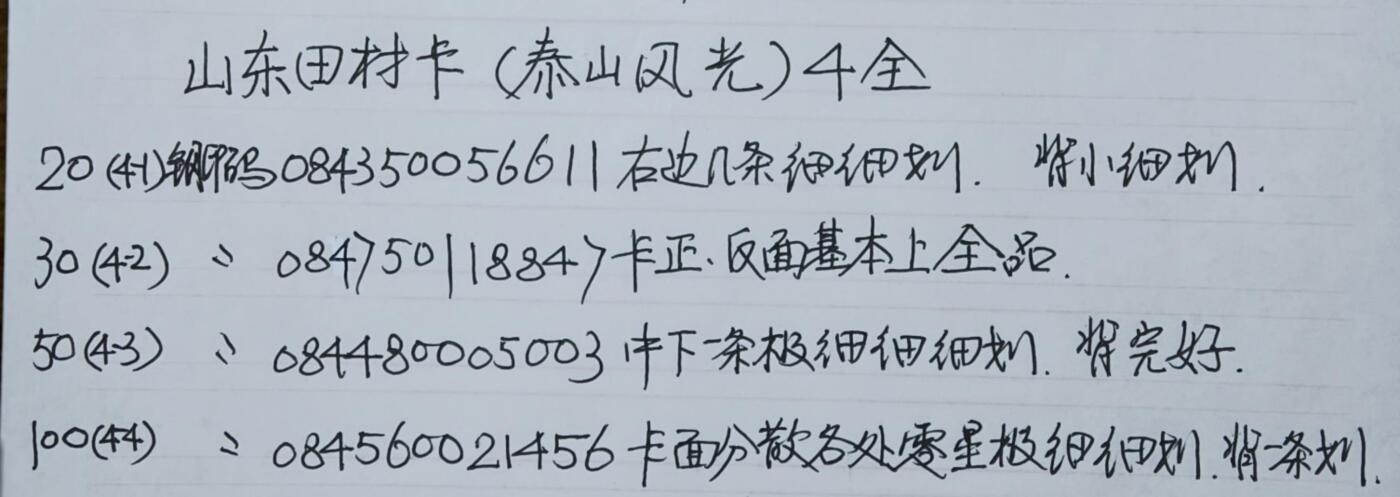 山东田村卡（泰山风光）4全
20(4-1)钢印码084350056611右边几条细细划. 背小细划.
30(4-2) 〃 084750118847卡正、反面基本上全品.
50(4-3) 〃 084480005003中下一条极细细细划. 背完好.
100(4-4) 〃 084560021456卡面分散各处零星极细细划. 背一条划.